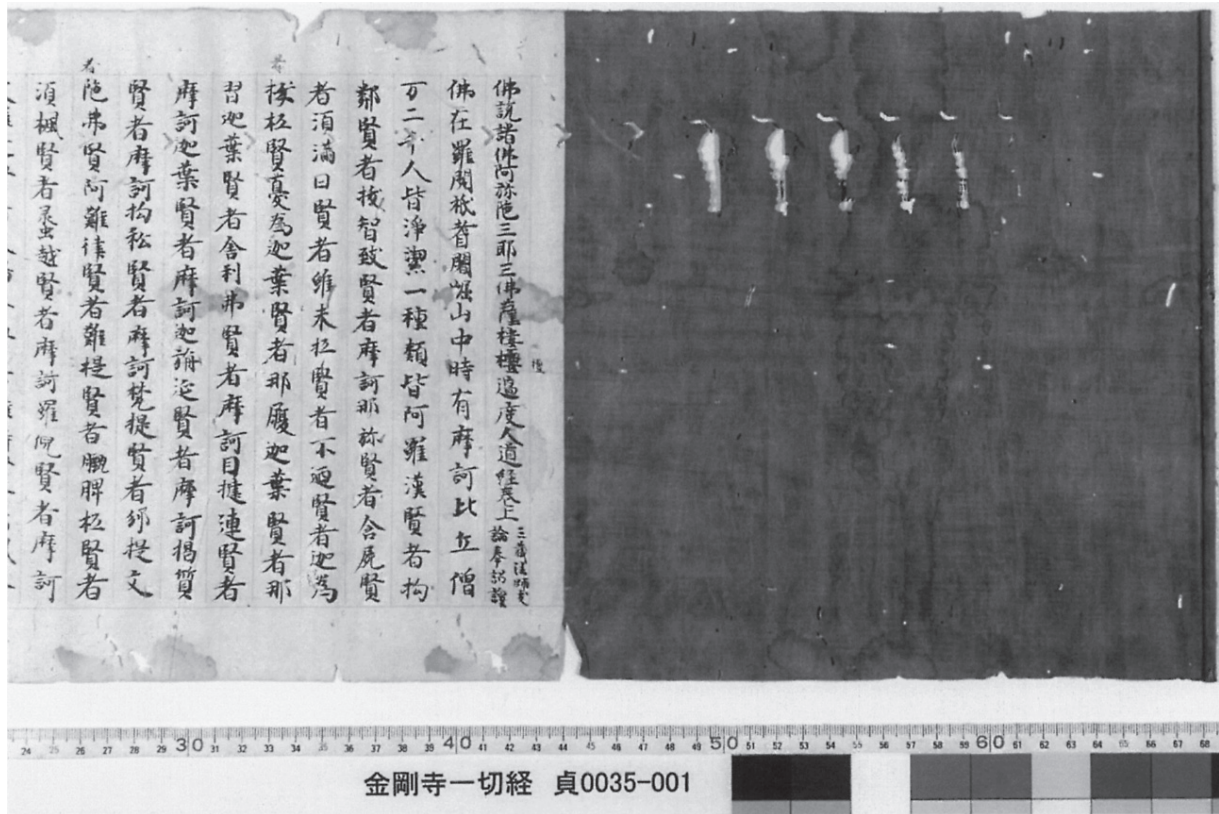 佛説諸佛阿弥陁三耶三佛薩樓過度人道経巻上
佛在羅閱祇耆闍崛山中時有摩訶比丘僧
万二千人皆淨潔一種類皆阿羅漢賢者拘
鄰賢者拔智致賢者摩訶那弥賢者合尸賢
者須滿日賢者維末坻賢者不廼賢者迦為
拔坻賢憂為迦葉賢者那履迦葉賢者那
習迦葉賢者舎利弗賢者摩訶目揵連賢者
摩訶迦葉賢者摩訶迦旃延賢者摩訶揭質
賢者摩訶拘私賢者摩訶梵提賢者邠提文
陁弗賢阿難律賢者難提賢者䏶脾坻賢者
須楓賢者蠡越賢者摩訶羅倪賢者摩訶
者
24 25 26 27 28 29 30 31 32 33 34 35 36 37 38 39 40 41 42 43 44 45 46 47 48 49 50 51 52 53 54 55 56 57 58 59 60 61 62 63 64 65 66 67 68
金剛寺一切経 貞0035-001